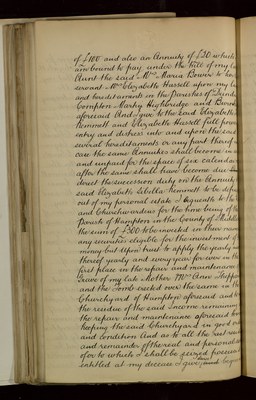 of £100 and also an Annuity of £20 which
am bound to pay under the Will of my l
Aunt the said Mrs Maria Bower to her
servant Mrs Elizabeth Hassell upon my l
and hereditaments in the Parishes of
Compton Marky Highbridge and Burn
aforesaid And I give to the said Elizabeth
Kemmett and Elizabeth Hassell full power
entry and distress into and upon the said
several hereditaments or any part thereof
case the same Annuities shall become in a
and unpaid for the space of six calendar
after the same shall have become due
direct the succession duty on the Annuity
said Elizabeth Sibella Kemmett to be defra
out of my personal estate I bequeath to the
and Churchwardens for the time being of the
Parish of Hampton in the County of Middle
the sum of £300 to be invested in their names
any securities eligible for the investment of
money but upon trust to apply the yearly in
thereof yearly and every year for ever in the
first place in the repair and maintenance
Grave of my late Mother Mrs Ann
and the Tomb erected over the same in the
Churchyard of Hampton aforesaid and to
the residue of the said Income remaining
the repair and maintenance aforesaid
keeping the said Churchyard in good or
and condition And as to all the rest resi
and remainder of the real and personal es
of or to which I shall be seized possessed
entitled at my decease I give and beque